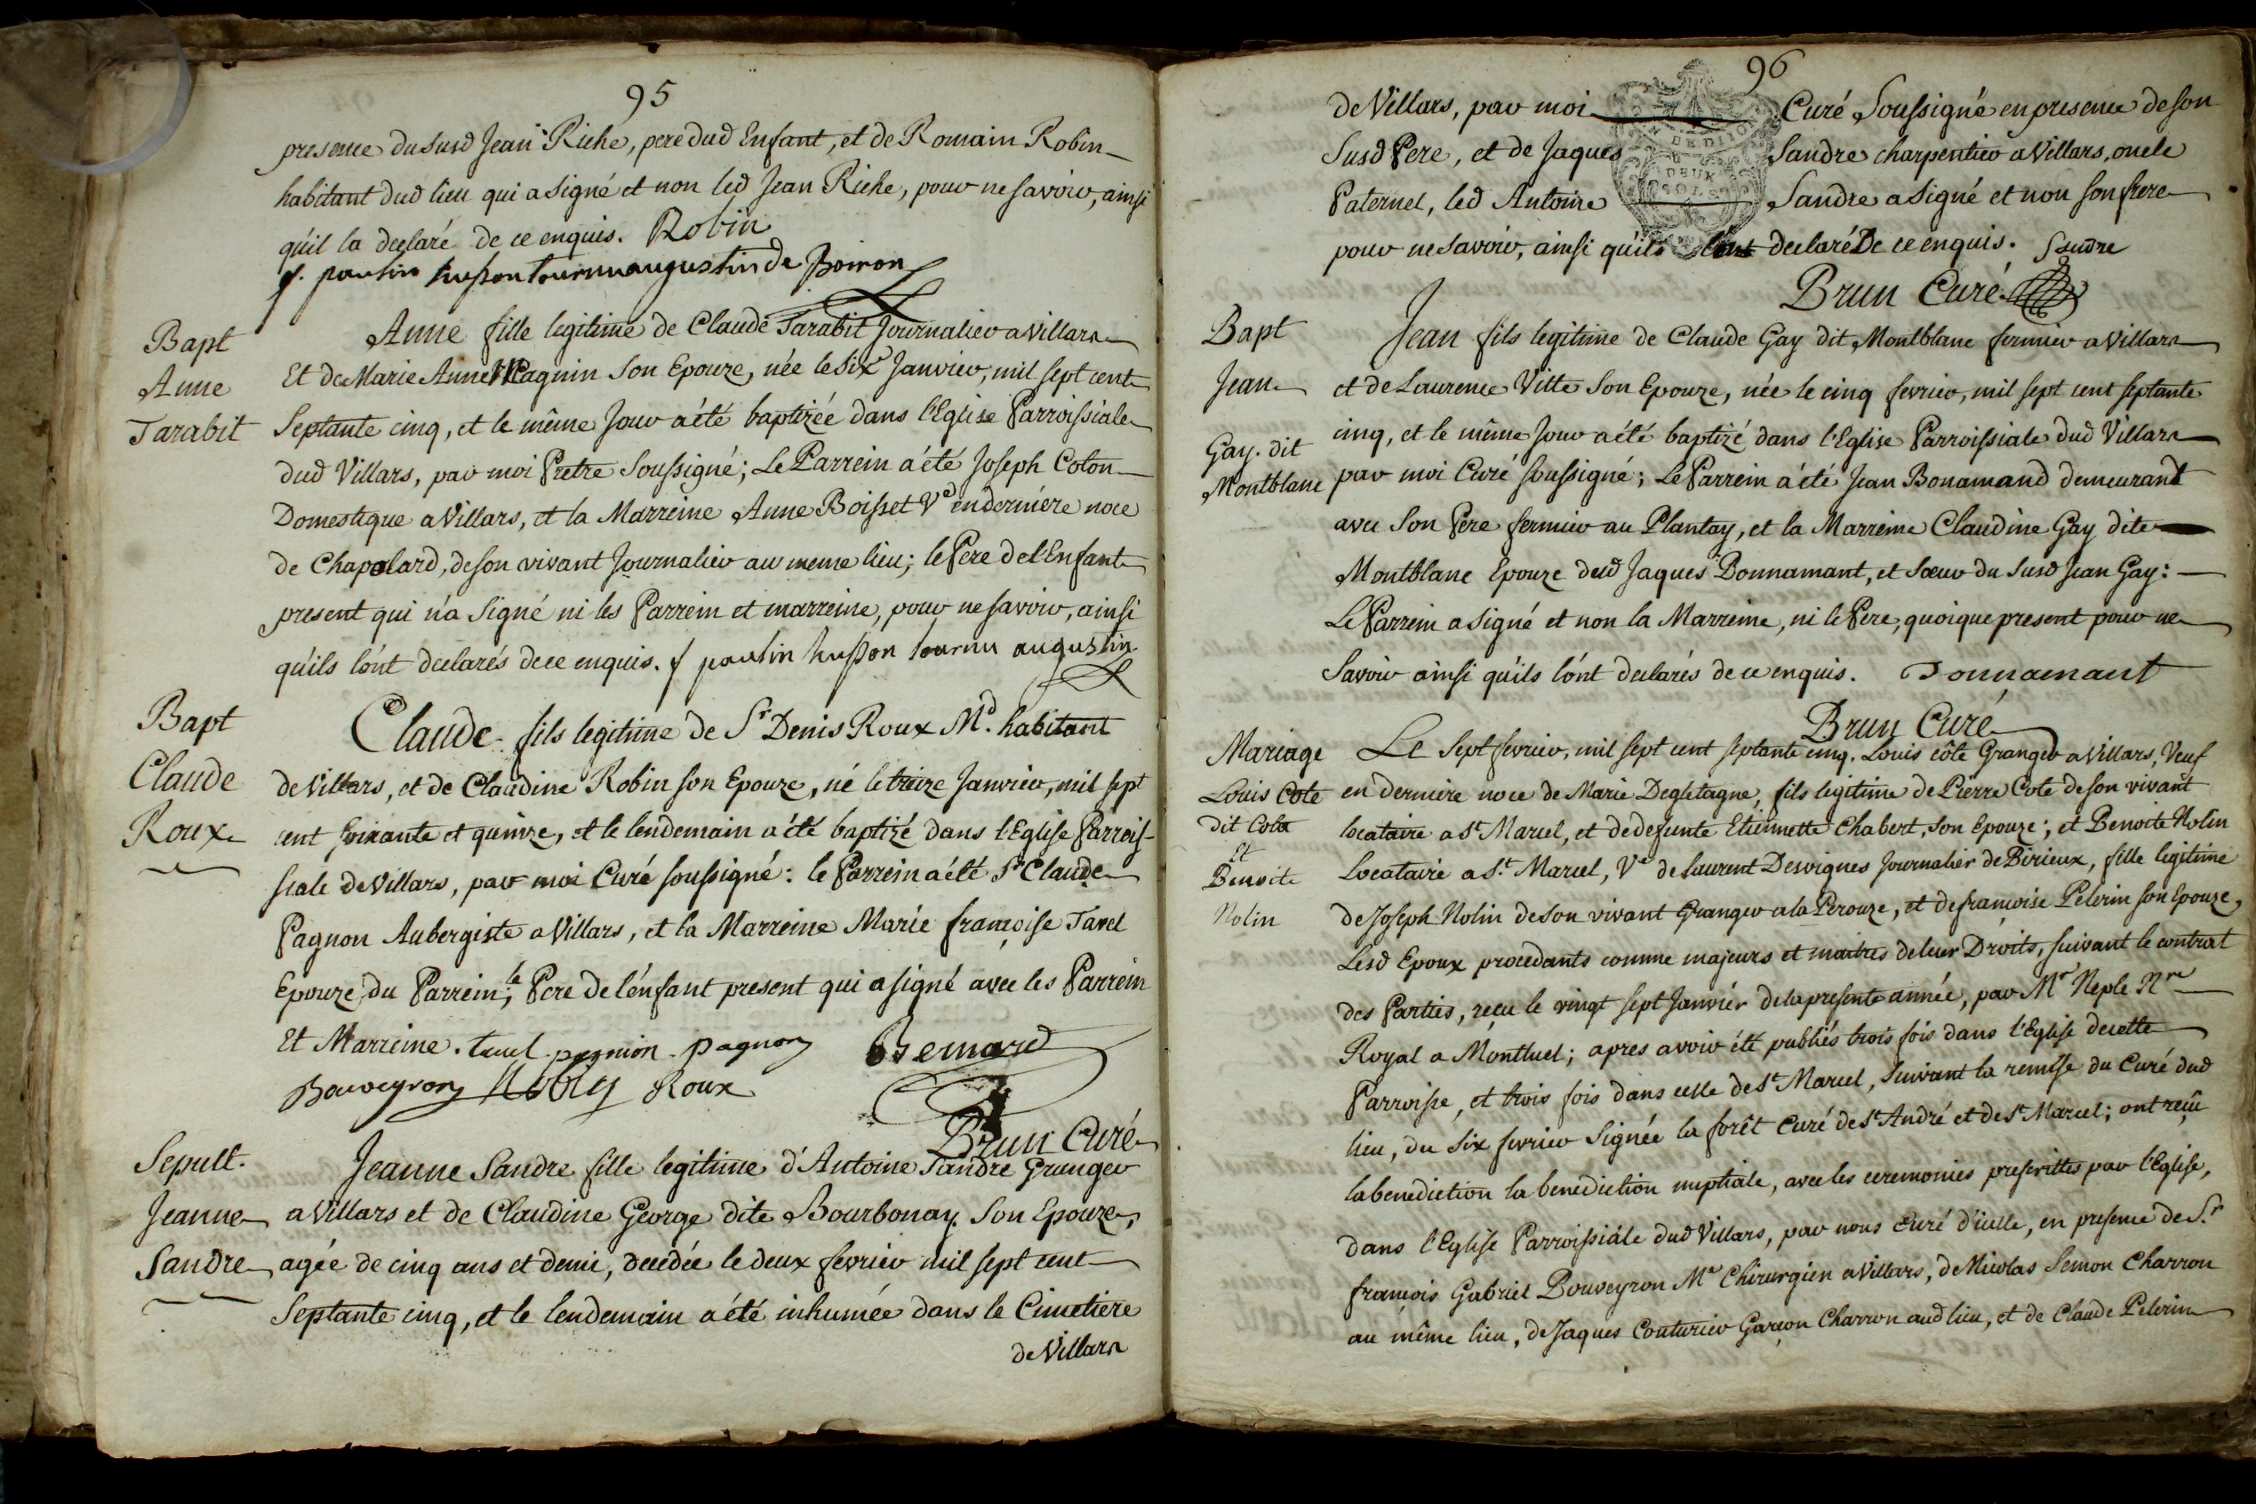 95
presence du susd Jean Riche, pere dud Enfant, et de Romain Robin
habitant dud lieu qui a signé et non led Jean Riche, pour ne savoir, ainsi
qu'il la declaré de ce enquis. Robin
f. paulin husson tournu augustin de Boiron
Bapt
Anne
Tarabit
Anne fille legitime de Claude Tarabit Journalier a Villars
Et de Marie Anne Magnin son Epouze, née le six Janvier, mil sept cent
Septante cinq, et le même Jour a été baptizée dans l'Eglise Parroissiale
dud Villars, par moi Pretre Soussigné; Le Parrein a été Joseph Coton
Domestique a Villars, et la Marreine Anne Boisset Ve en derniére noce
de Chapolard, de son vivant Journalier au meme lieu; le Pere de l'Enfant
present qui n'a signé ni les Parrein et marreine, pour ne savoir, ainsi
qu'ils l'ont declarés de ce enquis. f paulin husson tournu augustin
Bapt
Claude
Roux
Claude fils legitime de Sr Denis Roux Md. habitant
de Villars, et de Claudine Robin son Epouze, né le treize Janvier, mil sept
cent soixante et quinze, et le lendemain a été baptizé dans l'Eglise Parrois-
siale de Villars, par moi Curé soussigné: le Parrein a été Sr Claude
Pagnon Aubergiste a Villars, et la Marreine Marie françoise Tavel
Epouze du Parrein; le Pere de l'enfant present qui a signé avec les Parrein
Et Marreine. tavel pagnion pagnon Bernard
Bouveyron Robin Roux
Brun Curé
Sepult.
Jeanne
Sandre
Jeanne Sandre fille legitime d'Antoine Sandre Granger
a Villars et de Claudine George dite Bourbonay son Epouze,
agée de cinq ans et demi, decedée le deux fevrier mil sept cent
Septante cinq, et le lendemain a été inhumée dans le Cimetiere
de Villars
96
de Villars, par moi Curé Soussigné en presence de son
Susd Pere, et de Jaques Sandre charpentier a Villars, oncle
Paternel, led Antoine Sandre a signé et non son frere
pour ne savoir, ainsi qu'ils l'ont declaré De ce enquis. Sandre
DEUX SOLS
Brun Curé
Bapt
Jean
Gay. dit
Montblanc
Jean fils legitime de Claude Gay dit Montblanc fermier a Villars
et de Laurence Vitte son Epouze, née le cinq fevrier, mil sept cent septante
cinq, et le même Jour a été baptizé dans l'Eglise Parroissiale dud Villars
par moi Curé soussigné; Le Parrein a été Jean Bonamand demeurant
avec son Pere fermier au Plantay, et la Marreine Claudine Gay dite
Montblanc Epouze dud Jaques Bonnamant, et soeur du susd Jean Gay:
Le Parrein a signé et non la Marreine, ni le Pere, quoique present pour ne
Savoir ainsi qu'ils l'ont declarés de ce enquis. Bonnamant
Brun Curé
Mariage
Louis Cote
dit Cola
Et
Benoite
Nolin
Le Sept fevrier, mil sept cent septante cinq. Louis côte Granger a Villars, Veuf
en derniere noce de Marie Degletagne, fils legitime de Pierre Cote de son vivant
locataire a St Marcel, et de defunte Etiennette Chabert, son Epouze; et Benoite Nolin
Locataire a St. Marcel, Ve de laurent Desvignes Journalier de Birieux, fille legitime
de Joseph Nolin de son vivant Granger a la Perouze, et de françoise Pelerin son Epouze,
Lesd Epoux procedants comme majeurs et maitres de leur Droits, suivant le contrat
des Parties, reçu le vingt sept Janvier de la presente année, par Me Neple Nre
Royal a Montluel; apres avoir été publiés trois fois dans l'Eglise de cette
Parroisse, et trois fois dans celle de St Marcel, suivant la remise du Curé dud
lieu, du six fevrier signée la forêt Curé de St André et de St Marcel; ont reçu
la benediction la benediction nuptiale, avec les ceremonies prescrittes par l'Eglise,
dans l'Eglise Parroissiale dud Villars, par nous curé d'icelle, en presence de Sr
françois Gabriel Bouveyron Me Chirurgien a Villars, de Nicolas Semon Charron
au même lieu, de Jaques Couturier Garçon Charron aud lieu, et de Claude Pelerin